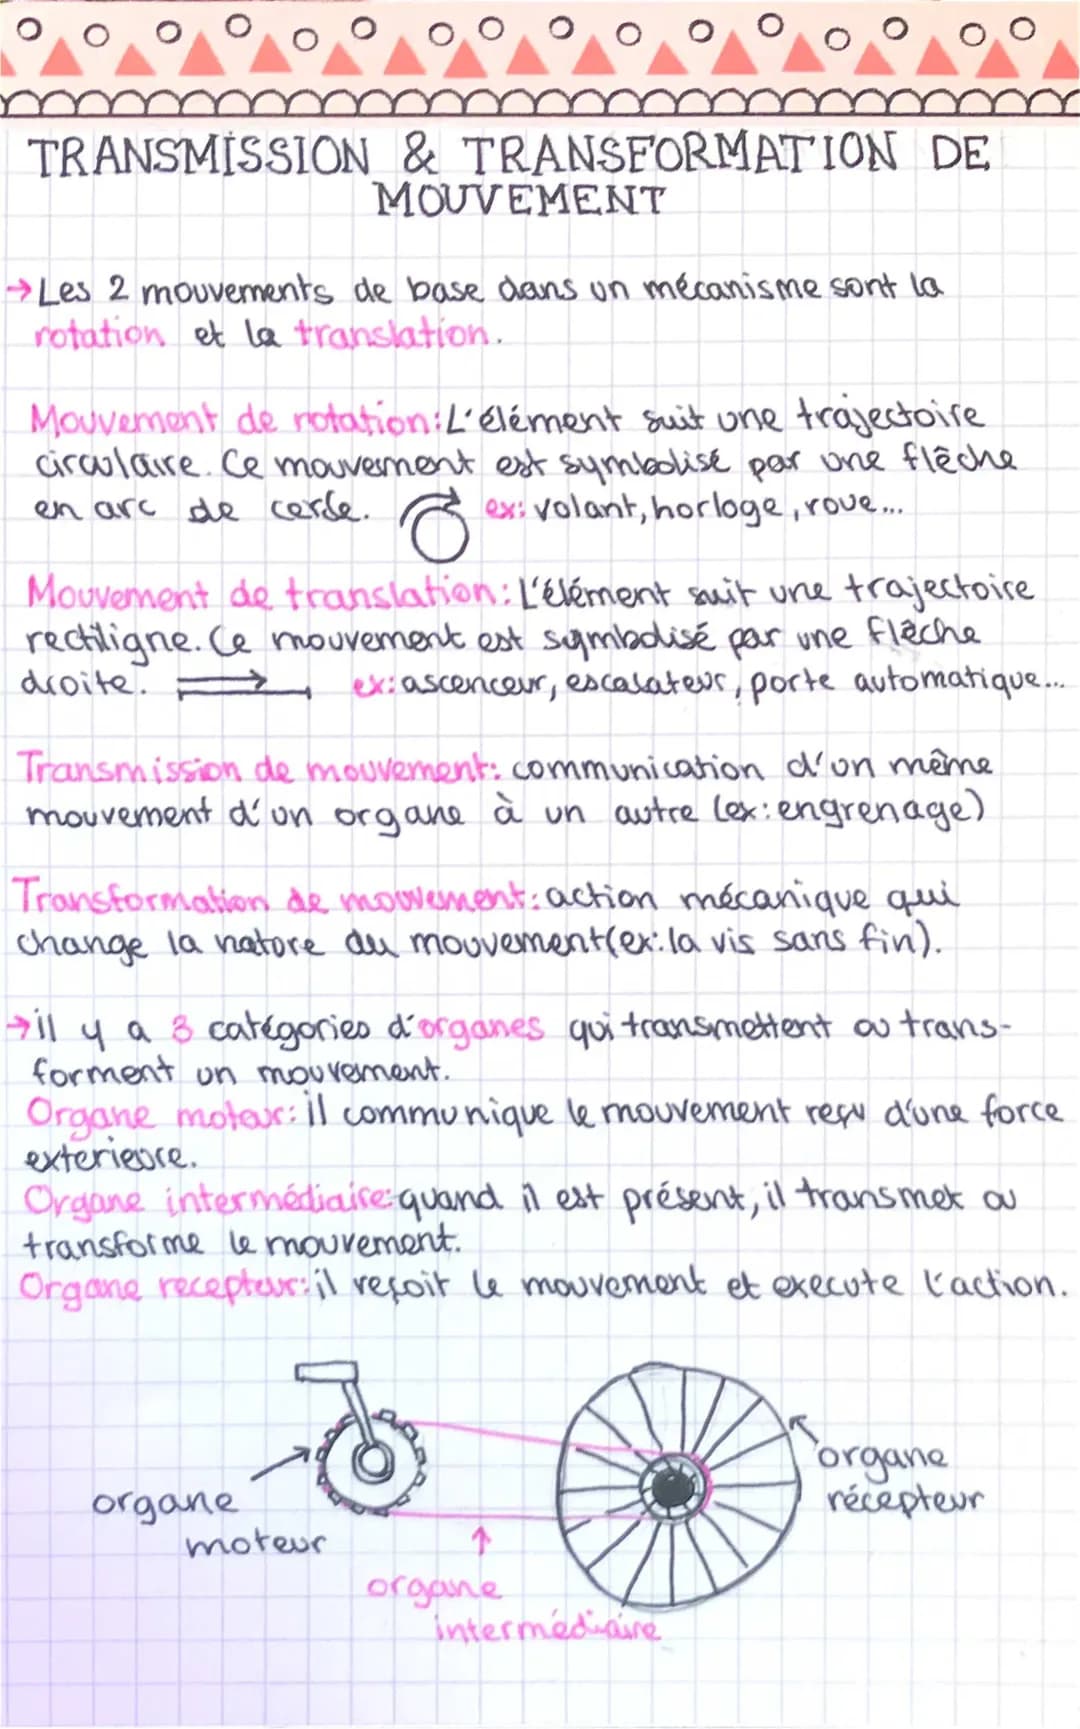 TRANSMISSION & TRANSFORMATION DE
MOUVEMENT
→Les 2 mouvements de base dans un mécanisme sont la
rotation et la translation.
Mouvement de rotation: L'élément suit une trajectoire
circulaire. Ce mouvement est symbolisé par une flèche
en arc de cercle. ex: volant, horloge, roue...
Mouvement de translation: L'élément suit une trajectoire
rectiligne. Ce mouvement est symbolisé par une flèche
droite. ex: ascenceur, escalateur, porte automatique...
Transmission de mouvement: communication d'un même
mouvement d'un organe à un autre (ex: engrenage)
Transformation de mouvement: action mécanique qui
change la nature du mouvement (ex: la vis sans fin).
→il y a 3 catégories d'organes qui transmettent ou trans-
forment un mouvement.
Organe moteur: il communique le mouvement reçu d'une force
exterieure.
Organe intermédiaire: quand il est présent, il transmet ou
transforme le mouvement.
Organe recepteur: il reçoit le mouvement et execute l'action.
organe
moteur
organe
intermédiaire
organe
récepteur